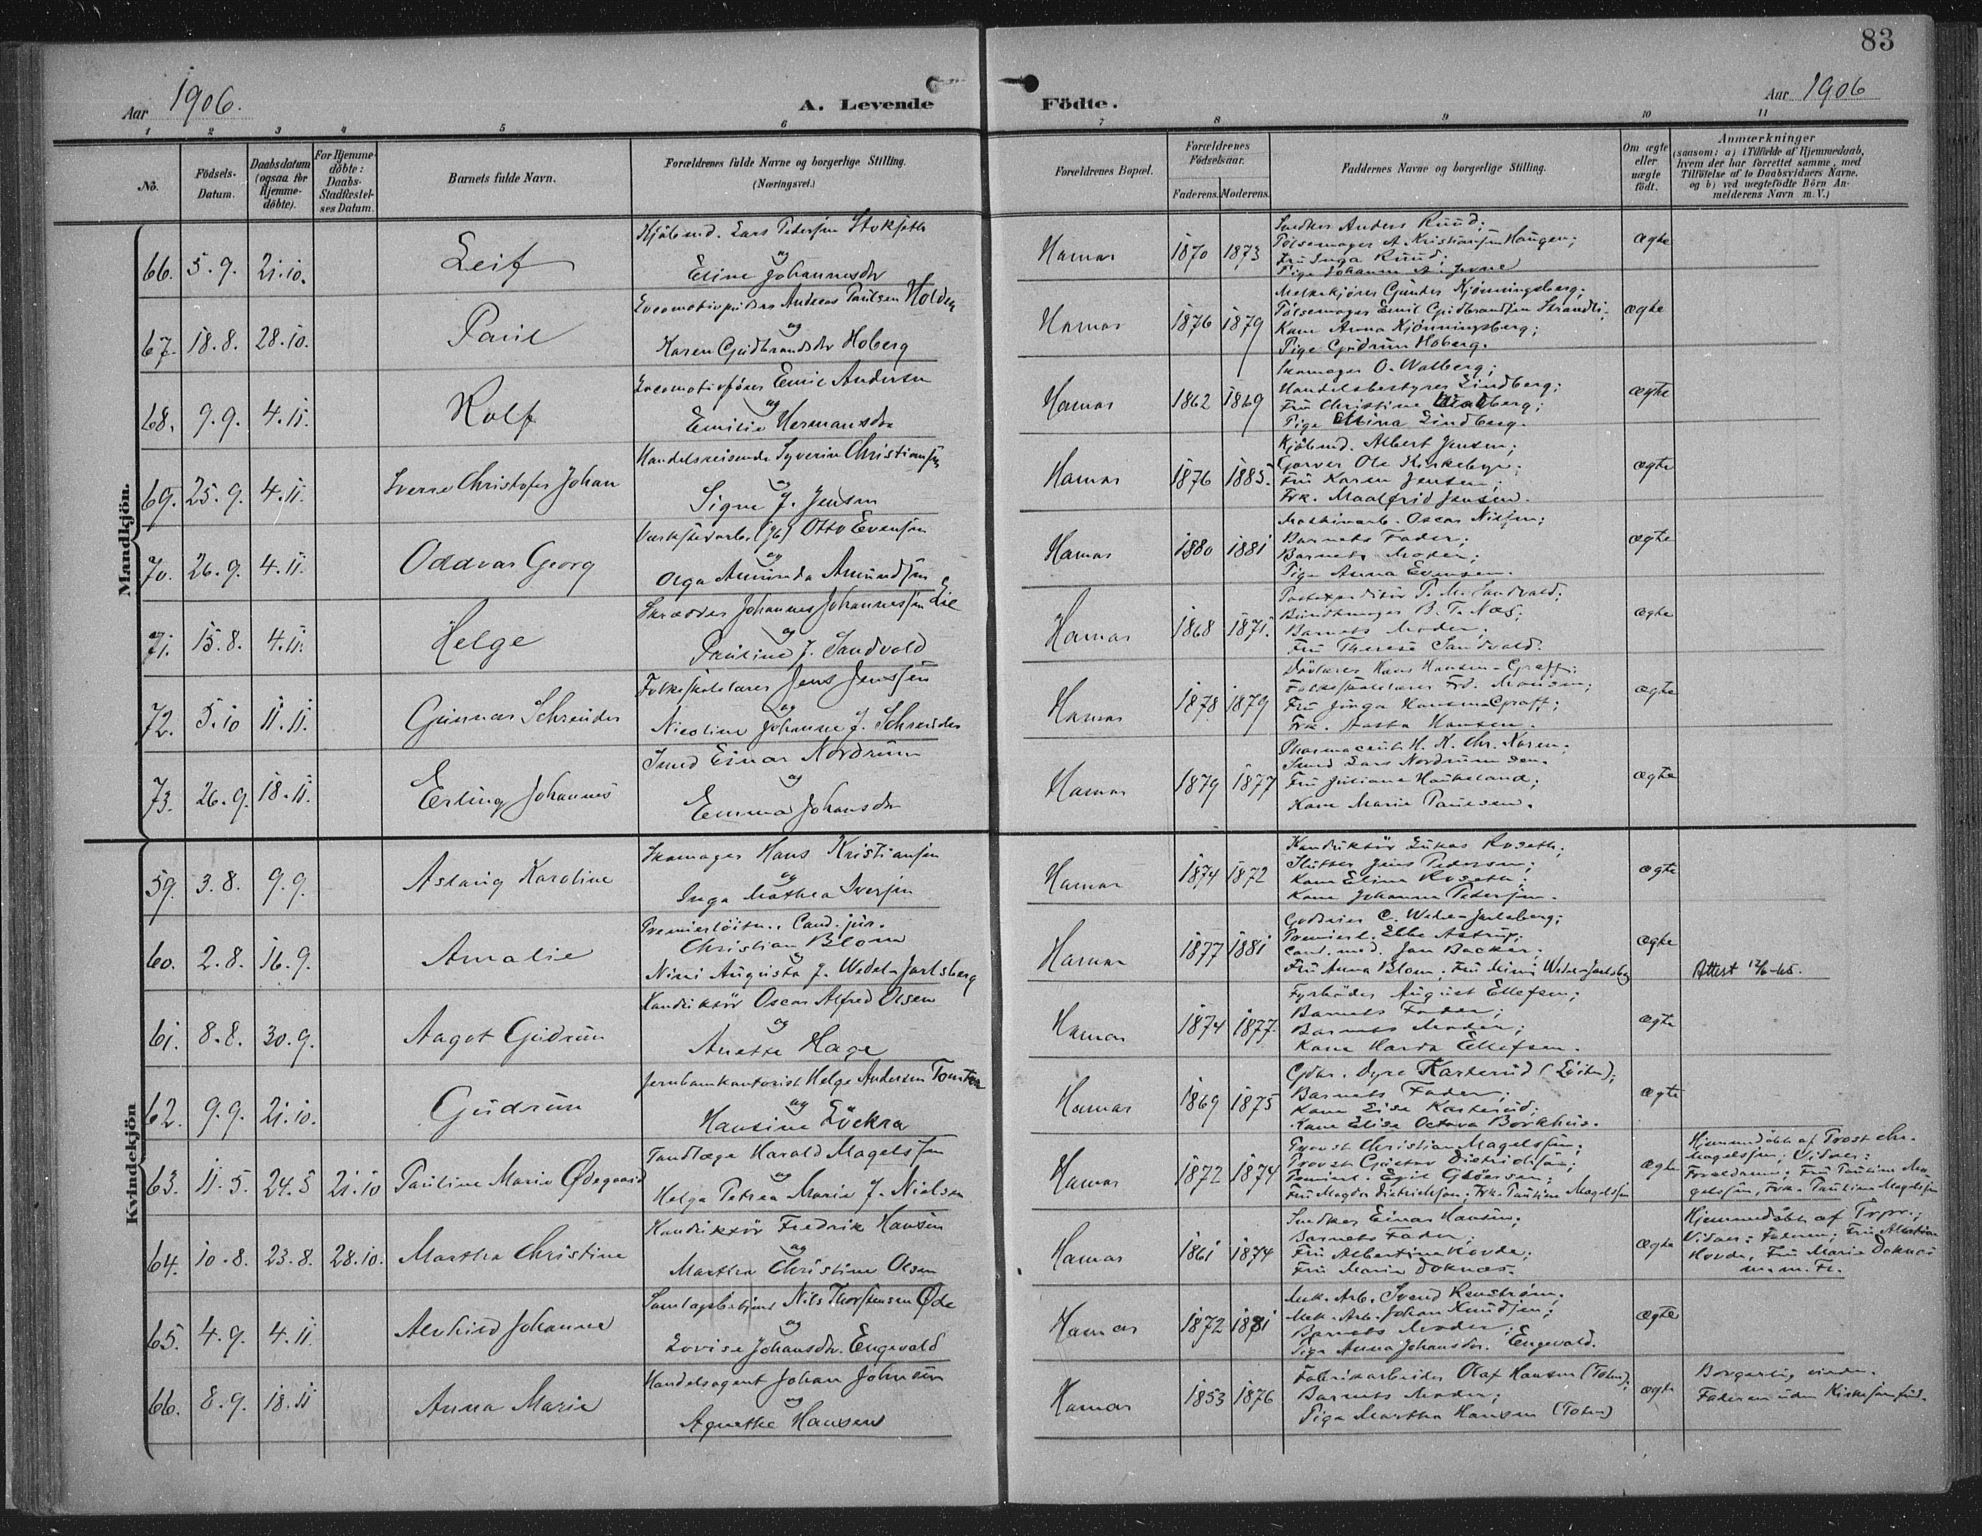 83
Aar 1906.
A. Levende Födte.
Aar 1906
1 2 3 4 5 6 7 8 9 10 11
No.
Födsels-Datum.
Daabsdatum (ogsaa for Hjemme-döbte).
For Hjemme-döbte: Daabs-Stadfæstel-ses Datum.
Barnets fulde Navn.
Forældrenes fulde Navne og borgerlige Stilling. (Næringsvei.)
Forældrenes Bopæl.
Forældrenes Födselsaar.
Faderens. Moderens.
Faddernes Navne og borgerlige Stilling.
Om ægte eller uægte födt.
Anmærkninger
(saasom: a) i Tilfælde af Hjemmedaab, hvem der har forrettet samme, med Tilföielse af to Daabsvidners Navne. og b) ved uægtefödte Börn Anmelderens Navn m. V.)
Mandkjön.
66. 5.9. 21.10. Leif
Kjöbmd. Lars Pedersen Stoksfeth
og
Eline Johannesdr
Hamar 1870 1873
Snedker Anders Ruud;
Pölsemager A. Kristiansen Haugen;
Fru Inga Ruud;
ægte
67. 18.8. 28.10. Paul
Andreas Paulsen Holden
og
Karen Gudbrandsdr Hoberg
Hamar 1876 1879
Pölsemager Emil Gudbrandsen Strandli;
Kone Anna Kjönningsberg;
Pige Gudrun Hoberg.
ægte
68. 9.9. 4.11. Rolf
Locomotivförer Emil Andersen
og
Emilie Hermansdr
Hamar 1862 1869
Skomager O. Walberg;
Handelsbestyrer Lindberg;
Fru Christine Walberg;
Pige Lindberg.
ægte
69. 25.9. 4.11. Sverre Christofer Johan
Handelsreisende Syverin Christiansen
og
Signe J. Jensen
Hamar 1876 1885.
Kjöbmd. Albert Jensen;
Garver Ole Kirkeby;
Fru Karen Jensen;
Frk. Maalfrid Jensen.
ægte
70. 26.9. 4.11. Oddvar Georg
Værkstedarb. (Jb) Otto Evensen
og
Olga Amunda Amundsen
Hamar 1880 1881
Maskinarb. Oscar Nilsen;
Barnets Fader;
Barnets Moder;
Pige Anna Evensen.
ægte
71. 15.8. 4.11. Helge
Skræder Johannes Johannessen Lie
og
Pauline J. Sandvold
Hamar 1868 1871.
Postexpeditör P. M. Sandvold;
Bundtmager B. T. Næs;
Barnets Moder;
Fru Therese Sandvold.
ægte
72. 5.10 11.11. Gunnar Schreuder
Folkeskolelærer Jens Jenssen
og
Nicoline Johanne J. Schreuder
Hamar 1878 1879
Hans Hansen-Graff;
Folkeskolelærer Frd. Monsen;
Fru Inga Hansen-Graff;
Frk. Aasta Hansen.
ægte
73. 26.9. 18.11. Erling Johannes
Smed Einar Nordrum
og
Emma Johansdr
Hamar 1879 1877
Pharmaceut H. K. Chr. Karen;
Smed Lars Nordrum sen.
Fru Juliane Haukeland;
Kone Marie Paulsen.
ægte
Kvindekjön
59. 3.8. 9.9. Aslaug Karoline
Skomager Hans Kristiansen
og
Inga Mathea Iversen
Hamar 1874 1872
Konduktör Lukas Roseth;
Slutter Jens Pedersen;
Kone Eline Roseth;
Kone Johanne Pedersen.
ægte
60. 2.8. 16.9. Amalie
Premierlöitn., Cand. jur.
Christian Blom
og
Nini Augusta J. Wedel-Jarlsberg
Hamar 1877 1881
Godseier C. Wedel-Jarlsberg;
Premierl. Ebbe Astrup;
Cand. med. Jan Backer;
Fru Anna Blom; Fru Mimi Wedel-Jarlsberg
ægte
Attest 12/6-45.
61. 8.8. 30.9. Aagot Gudrun
Konduktör Oscar Alfred Olsen
og
Anette Hage
Hamar 1874 1877.
Fyrböder August Ellefsen;
Barnets Fader;
Barnets Moder;
Kone Harda Ellefsen.
ægte
62. 9.9. 21.10. Gudrun
Jernbanekontorist Helge Andersen Tomter
og
Hansine Löckra
Hamar 1869 1875
Gdbr. Dyre Karterud (Löiten);
Barnets Fader;
Kone Elise Karterud;
Kone Elise Octava Borkhus.
ægte
63. 11.5. 24.5 21.10 Pauline Marie Ødegaard
Tandlæge Harald Magelssen
og
Helga Petrea Marie J. Nielsen
Hamar 1872 1874
Provst Christian Magelssen;
Provst Gustav Dietrichson;
Premierl. Egil Glörsen;
Fru Magda Dietrichson; Frk. Pauline Magelssen
ægte
Hjemmedöbt af Provst Chr.
Magelssen; Vidner:
Forældrene; Fru Pauline Ma-
gelssen, Frk. Pauline Magelssen
64. 10.8. 23.8. 28.10. Martha Christine
Konduktör Fredrik Hansen
og
Martha Christine Olsen
Hamar 1861 1874
Snedker Einar Hansen;
Barnets Fader;
Fru Albertine Hovde;
Fru Marie Doknæs.
ægte
Hjemmedöbt af
Vidner: Faderen; Fru Albertine
Hovde, Fru Marie Doknæs
m. m. Fl.
65. 4.9. 4.11. Alvhild Johanne
Nils Thorstensen Øde
og
Lovise Johansdr. Engevold
Hamar 1872 1881
Mek. Arb. Svend Renström;
Mek. Arb. Johan Knudsen;
Barnets Moder;
Pige Anna Johansdr. Engevold.
ægte
66. 8.9. 18.11 Anna Marie
Handelsagent Johan Johnsen
og
Agnethe Hansen
Hamar 1853 1876
Fabrikarbeider Olaf Hansen (Toten);
Barnets Moder;
Pige Martha Hansen (Toten)
ægte
Borgerlig viede.
Faderen uden Kirkesamfund.